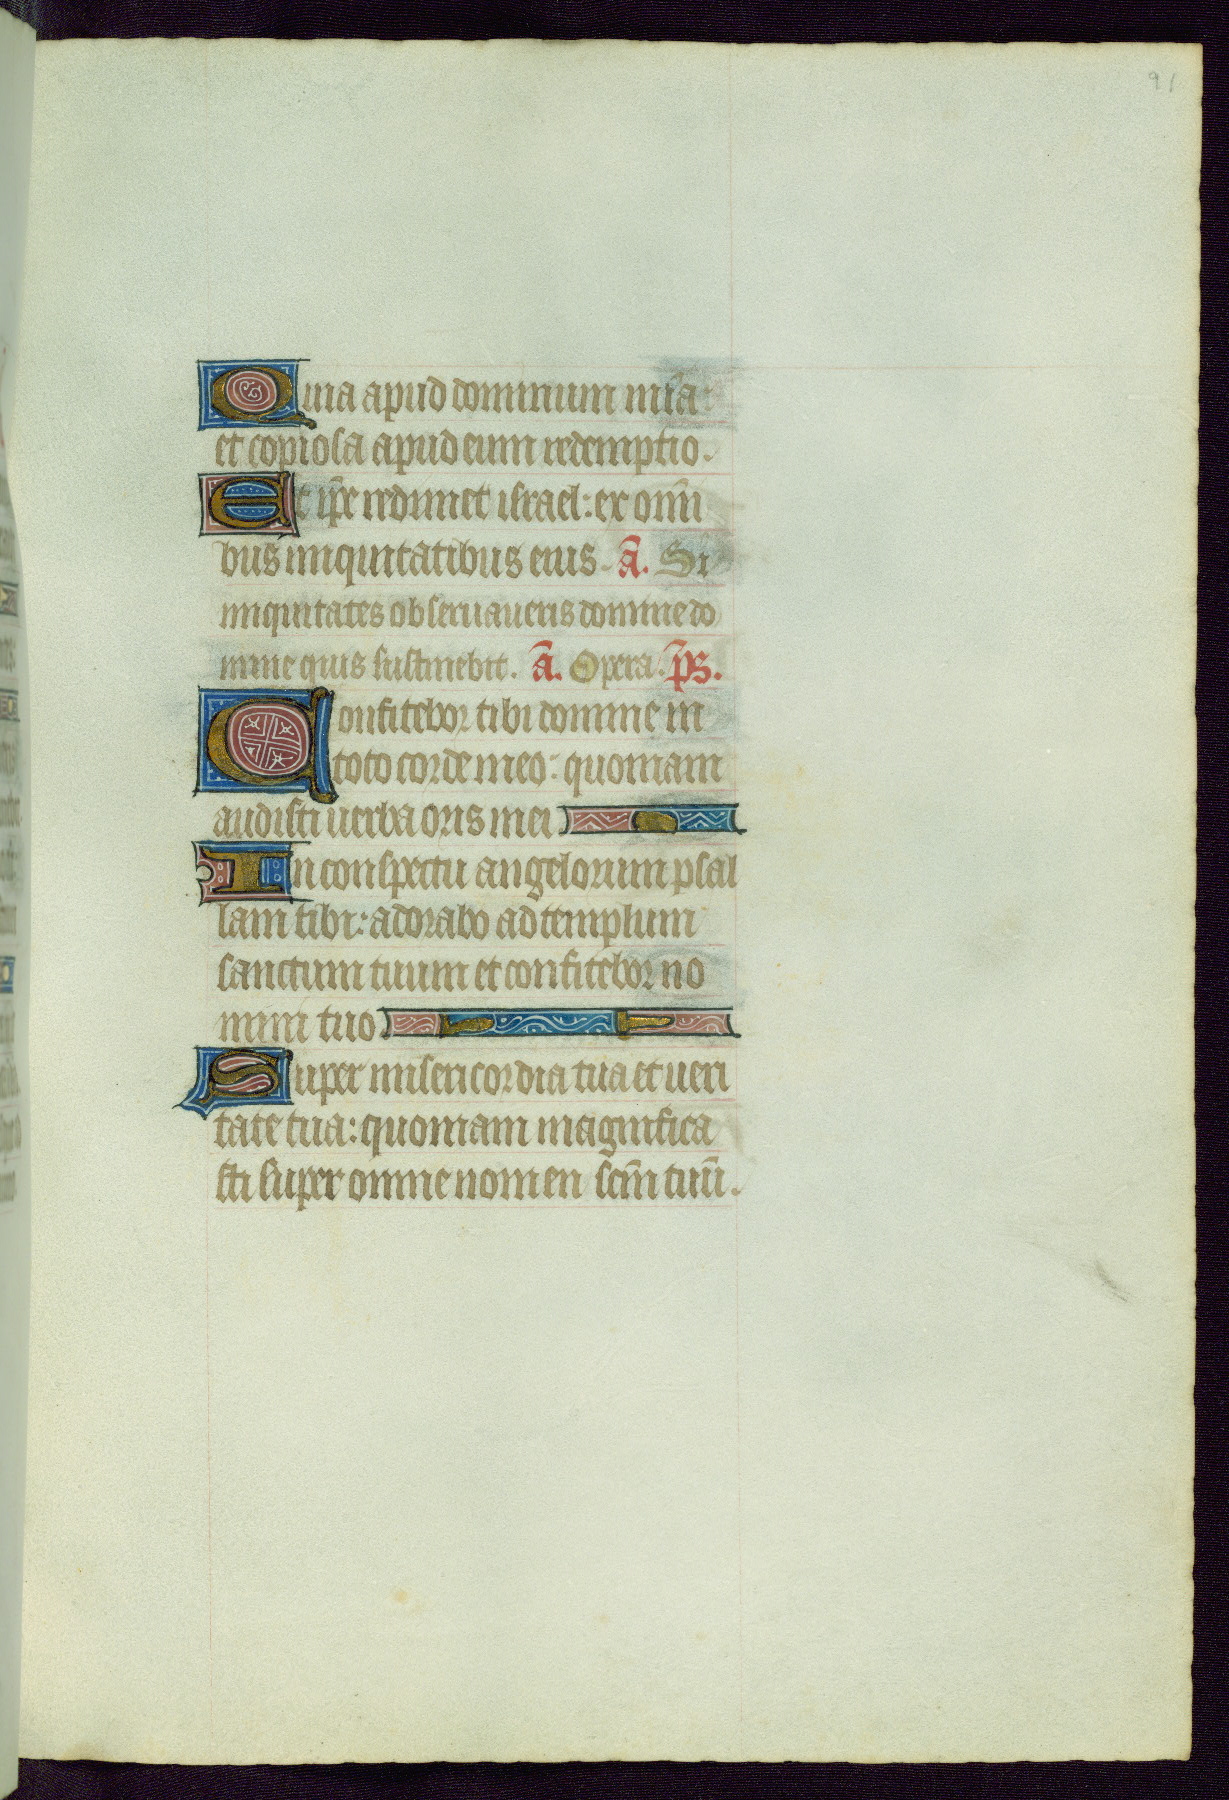 91
Quia apud dominum mīa:
et copiosa apud eum redemptio.
Et ip̄e redimet israel: ex om̄i
bus iniquitatibus eius. A̅. Si
iniquitates obseruaueris domine do
mine quis sustinebit. A̅. Opera. p̄s.
Confitebor tibi domine in
toto corde meo: quoniam
audisti uerba oris mei
In conspectu angelorum psal
lam tibi: adorabo ad templum
sanctum tuum et confitebor no
mini tuo
Super misericordia tua et ueri
tate tua: quoniam magnifica
sti super omne nomen scm̄ tuū.